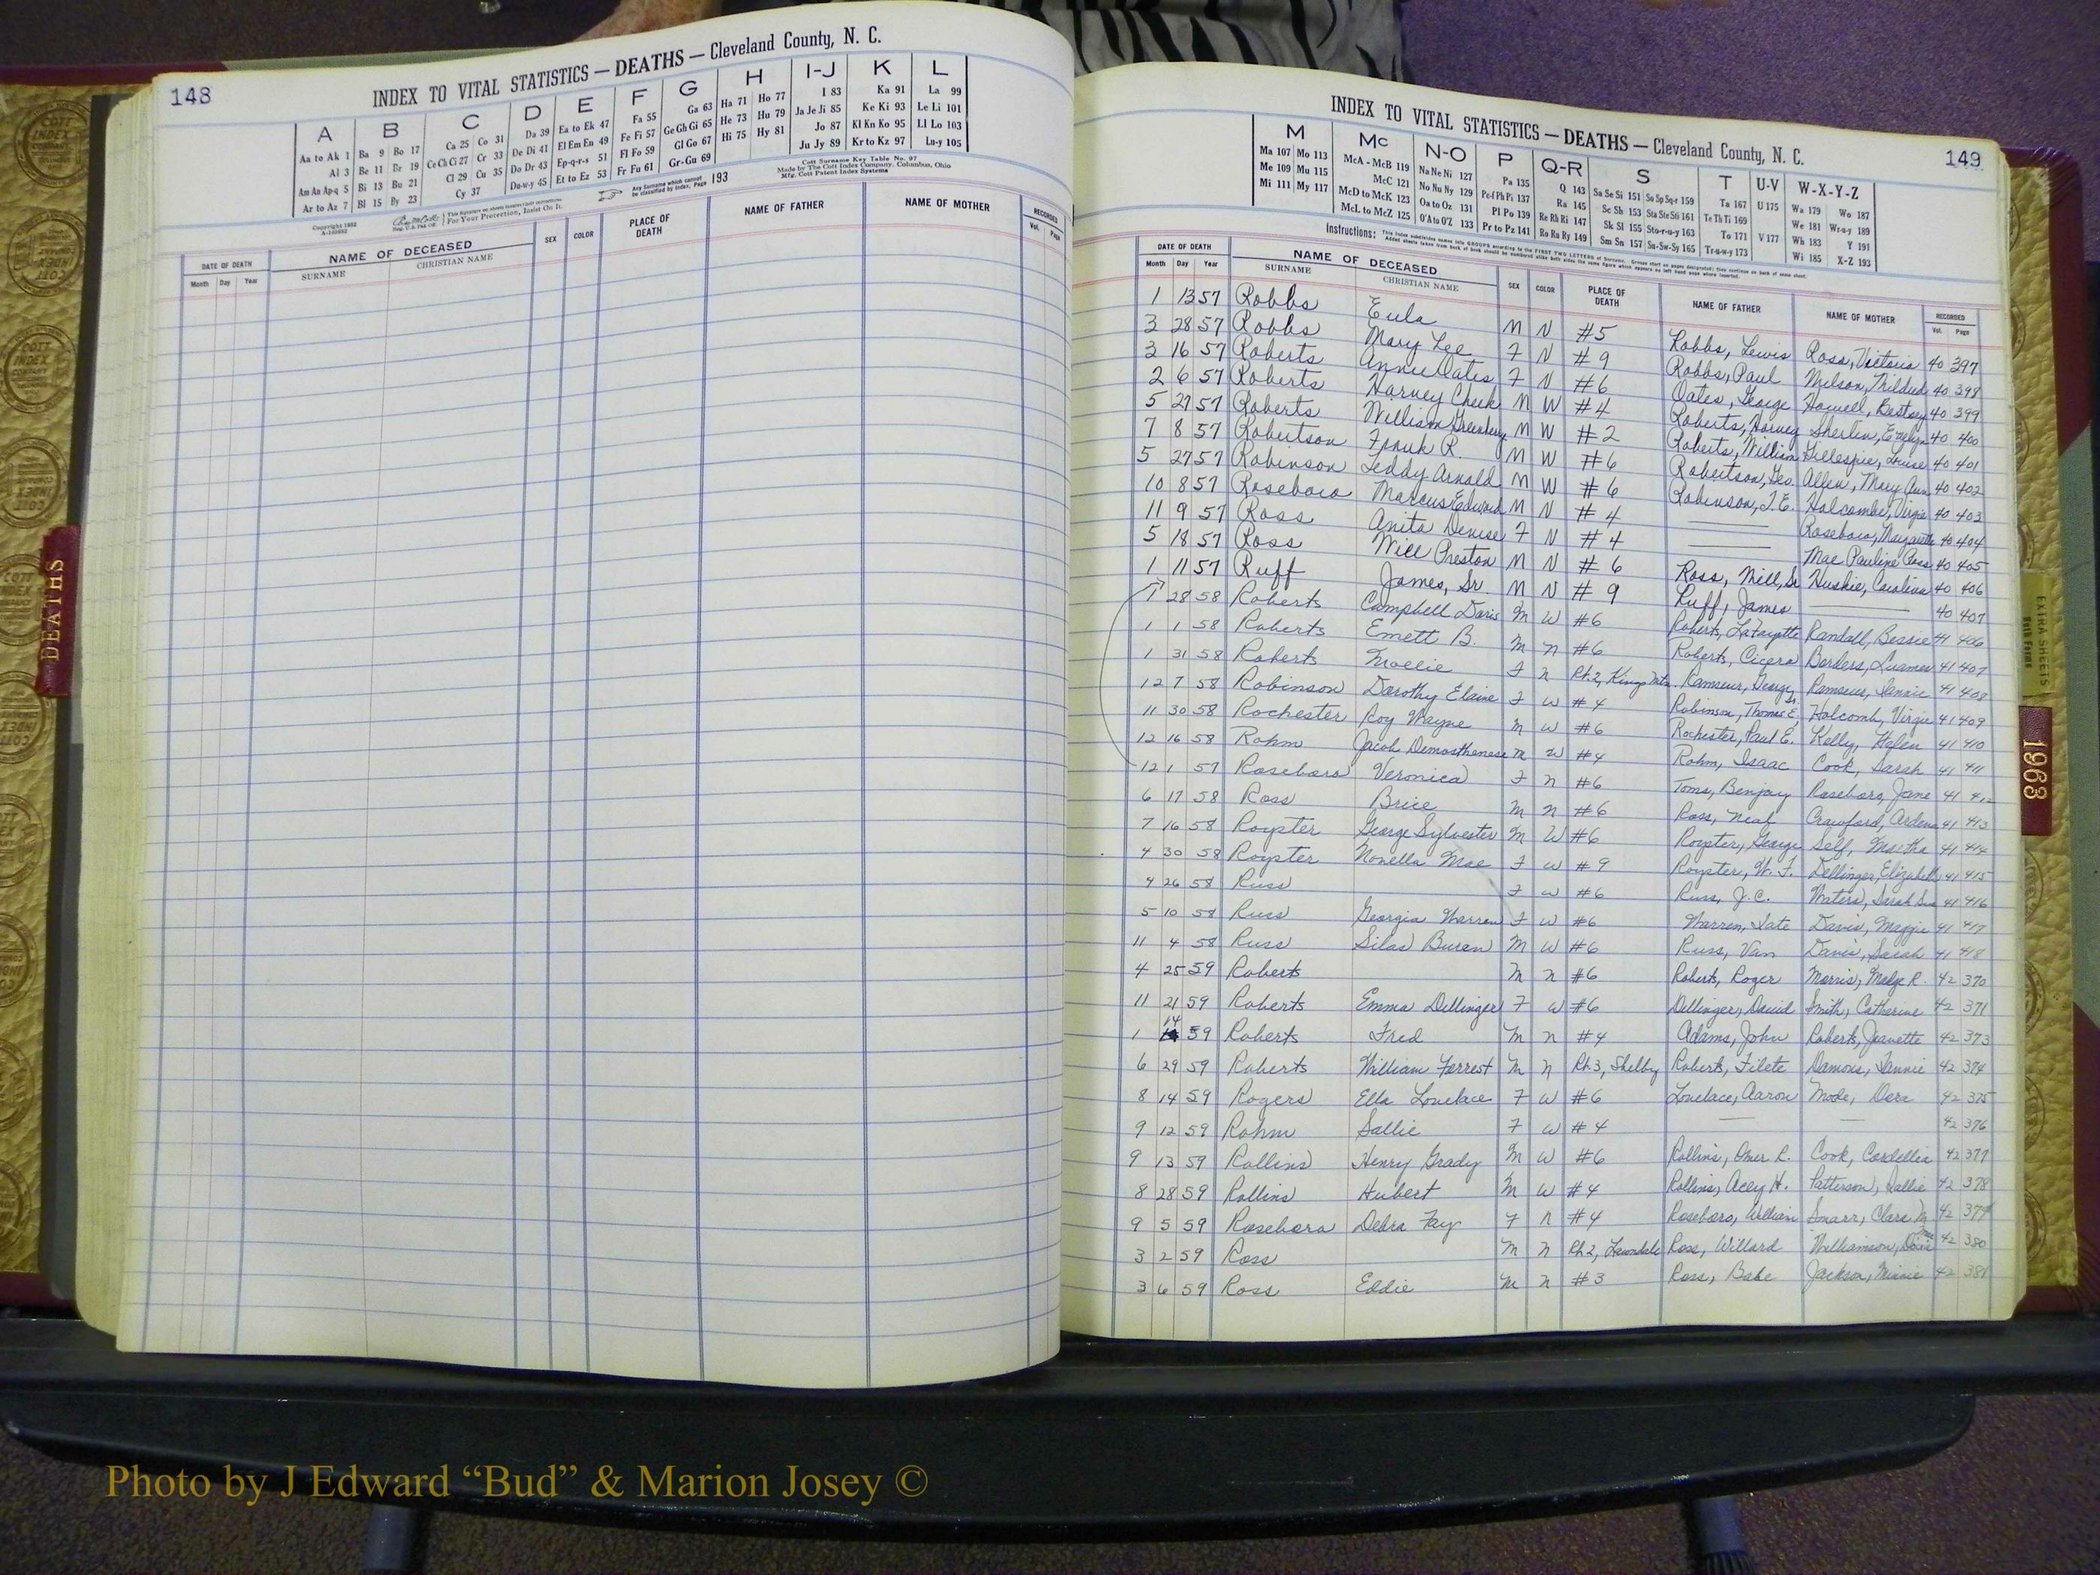 148
INDEX TO VITAL STATISTICS — DEATHS — Cleveland County, N. C.
A B C D E F G H I-J K L
Aa to Ak 1 Ba 9 Bo 17 Ca 25 Co 31 Da 39 Ea to Ek 47 Fa 55 Ga 63 Ha 71 Ho 77 I 83 Ka 91 La 99
Al 3 Be 11 Br 19 Ce Ch Ci 27 Cr 33 De Di 41 El Em En 49 Fe Fi 57 Ge Gh Gi 65 He 73 Hu 79 Ja Je Ji 85 Ke Ki 93 Le Li 101
Am An Ap-q 5 Bi 13 Bu 21 Cl 29 Cu 35 Do Dr 43 Ep-q-r-s 51 Fl Fo 59 Gl Go 67 Hi 75 Hy 81 Jo 87 Kl Kn Ko 95 Ll Lo 103
Ar to Az 7 Bl 15 By 23 Cy 37 Du-w-y 45 Et to Ez 53 Fr Fu 61 Gr-Gu 69 Ju Jy 89 Kr to Kz 97 Lu-y 105
Any Surname which cannot be classified by Index, Page 193
Cott Surname Key Table No. 97
Made by The Cott Index Company, Columbus, Ohio
Mfg. Cott Patent Index Systems
Copyright 1952
For Your Protection, Insist On It.
DATE OF DEATH NAME OF DECEASED SEX COLOR PLACE OF DEATH NAME OF FATHER NAME OF MOTHER RECORDED
Month Day Year SURNAME CHRISTIAN NAME Vol. Page
149
INDEX TO VITAL STATISTICS — DEATHS — Cleveland County, N. C.
M Mc N-O P Q-R S T U-V W-X-Y-Z
Ma 107 Mo 113 McA - McB 119 Na Ne Ni 127 Pa 135 Q 143 Sa Se Si 151 So Sp Sq-r 159 Ta 167 U 175 Wa 179 Wo 187
Me 109 Mu 115 McC 121 No Nu Ny 129 Pe-f Ph Pi 137 Ra 145 Sc Sh 153 Sta Ste Sti 161 Te Th Ti 169 We 181 Wr-u-y 189
Mi 111 My 117 McD to McK 123 Oa to Oz 131 Pl Po 139 Re Rh Ri 147 Sk Sl 155 Sto-r-u-y 163 To 171 V 177 Wh 183 Y 191
McL to McZ 125 O'A to O'Z 133 Pr to Pz 141 Ro Ru Ry 149 Sm Sn 157 Su-Sw-Sy 165 Tr-u-w-y 173 Wi 185 X-Z 193
Instructions:
DATE OF DEATH NAME OF DECEASED SEX COLOR PLACE OF DEATH NAME OF FATHER NAME OF MOTHER RECORDED
Month Day Year SURNAME CHRISTIAN NAME Vol. Page
1 13 57 Robbs Eula M N #5 Robbs, Lewis Ross, Victoria 40 397
3 28 57 Robbs Mary Lee F N #9 Robbs, Paul Melson, Mildred 40 398
3 16 57 Roberts Annie Oates F N #6 Oates, George Howell, Bettsey 40 399
2 6 57 Roberts Harvey Cheek M W #4 Roberts, Harvey Sherlin, Evelyn 40 400
5 27 57 Roberts William Greenberry M W #2 Roberts, William Gillespie, 40 401
7 8 57 Robertson Frank R. M W #6 Robertson, Geo. Allen, Mary Ann 40 402
5 27 57 Robinson Teddy Arnold M W #6 Robinson, T. E. Holcombe, Virgie 40 403
10 8 57 Roseboro Marcus Edward M N #4 Roseboro, 40 404
11 9 57 Ross Anita Denise F N #4 Mae Pauline Ross 40 405
5 18 57 Ross Will Preston M N #6 Ross, Will, Sr Huskie, Carolina 40 406
1 11 57 Ruff James, Sr. M N #9 Ruff, James 40 407
1 28 58 Roberts Campbell Davis M W #6 Roberts, LaFayette Randall, Bessie 41 406
1 1 58 Roberts Emett B. M N #6 Roberts, Cicero Borders, 41 407
1 31 58 Roberts Mollie F N Rt. 2, Kings Mtn. Ramseur, George Ramseur, Fannie 41 408
12 7 58 Robinson Dorothy Elaine F W #4 Robinson, Thomas E, Sr. Holcomb, Virgie 41 409
11 30 58 Rochester Roy Wayne M W #6 Rochester, Paul E. Kelly, Helen 41 410
12 16 58 Rohm Jacob Demosthenese M W #4 Rohm, Isaac Cook, Sarah 41 411
12 1 57 Roseboro Veronica F N #6 Toms, Benjay Roseboro, Jane 41 412
6 17 58 Ross Brice M N #6 Ross, Neal Crawford, Ardena 41 413
7 16 58 Royster George Sylvester M W #6 Royster, George Self, Martha 41 414
4 30 58 Royster Novella Mae F W #9 Royster, W. F. Dellinger, Elizabeth 41 415
4 26 58 Russ F W #6 Russ, J. C. Waters, Sarah Sue 41 416
5 10 58 Russ Georgia Warren F W #6 Warren, Tate Davis, Maggie 41 417
11 4 58 Russ Silas Buren M W #6 Russ, Van Davis, Sarah 41 418
4 25 59 Roberts M N #6 Roberts, Roger Morris, Madge R. 42 370
11 21 59 Roberts Emma Dellinger F W #6 Dellinger, David Smith, Catherine 42 371
1 14 59 Roberts Fred M N #4 Adams, John Roberts, Jeanette 42 373
6 29 59 Roberts William Forrest M N Rt. 3, Shelby Roberts, Filete Damons, Fannie 42 374
8 14 59 Rogers Ella Lovelace F W #6 Lovelace, Aaron Mode, Dera 42 375
9 12 59 Rohm Sallie F W #4 42 376
9 13 59 Rollins Henry Grady M W #6 Rollins, Omer R. Cook, Cordellia 42 377
8 28 59 Rollins Hubert M W #4 Rollins, Acey H. Patterson, Sallie 42 378
9 5 59 Roseboro Debra Fay F N #4 Roseboro, William Smarr, Clara M. 42 379
3 2 59 Ross M N Rt 2, Lawndale Ross, Willard Williamson, Doris Mae 42 380
3 6 59 Ross Eddie M N #3 Ross, Babe Jackson, Minnie 42 381
DEATHS
EXTRA SHEETS
1963
COTT INDEX
Photo by J Edward “Bud” & Marion Josey ©